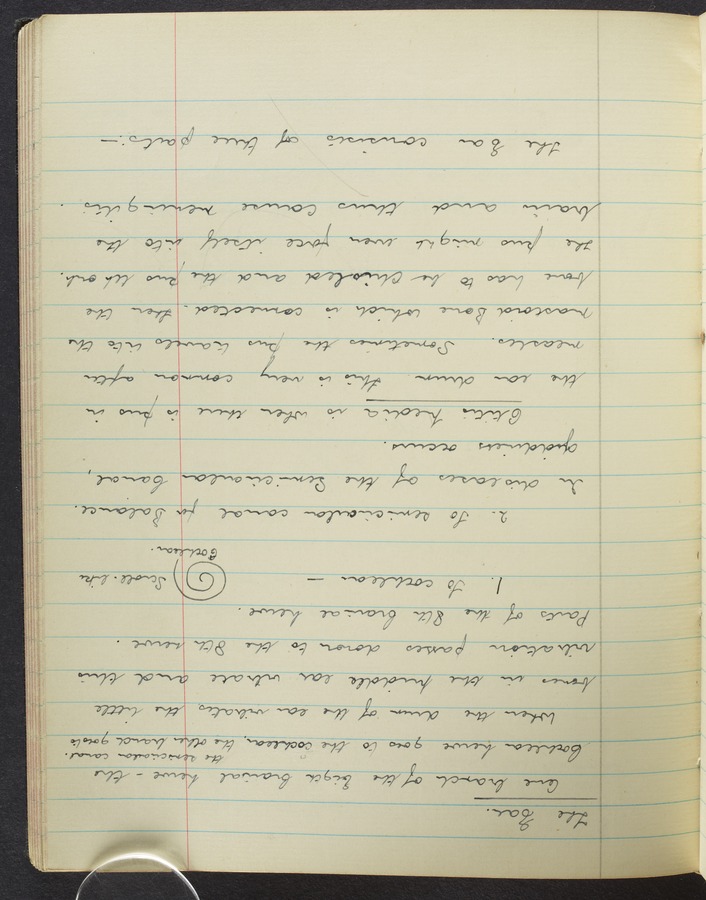 The Ear.
One branch of the Eigth Cranial nerve - the
Cochlear nerve goes to the cochlear, the other branch goes to
the semicircular canal.
When the drum of the ear vibrates the little
bones in the middle ear vibrate and this
vibration passes down to the 8th nerve.
Parts of the 8th Cranial nerve.
1. To cochlear — Scroll-like
Cochlear.
2. To semicircular canal for Balance.
In diseases of the Semicircular Canal,
giddiness occurs.
Otitis Media is when there is pus in
the ear drum this is very common after
measles. Sometimes the pus travels into the
mastoid Bone which is connected. then the
bone has to be chiseled and the pus let out.
The pus might even force itself into the
brain and thus cause meningitis.
The Ear consists of three parts:—